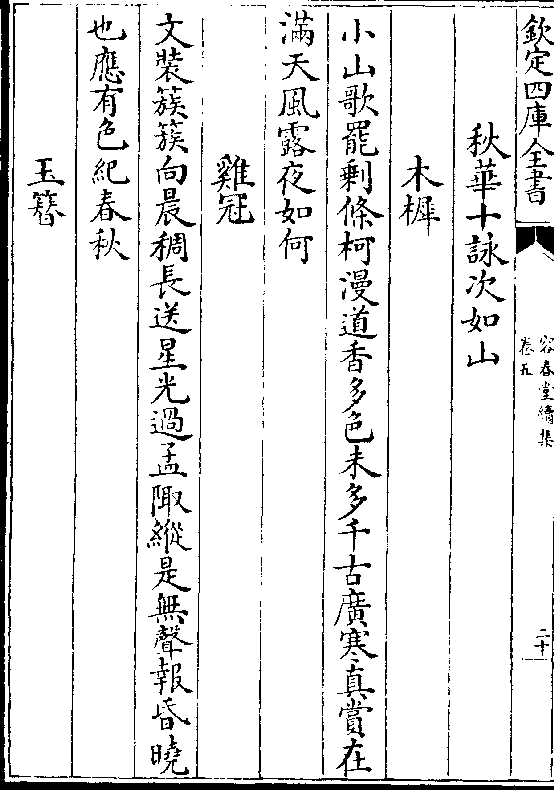 欽定四庫全書
容春堂續集
卷五
二十
秋華十詠次如山
木樨
小山歌罷剩條柯漫道香多色未多千古廣寒真賞在
滿天風露夜如何
雞冠
文裝簇簇向晨稠長送星光過孟陬縱是無聲報昏曉
也應有色紀春秋
玉簪